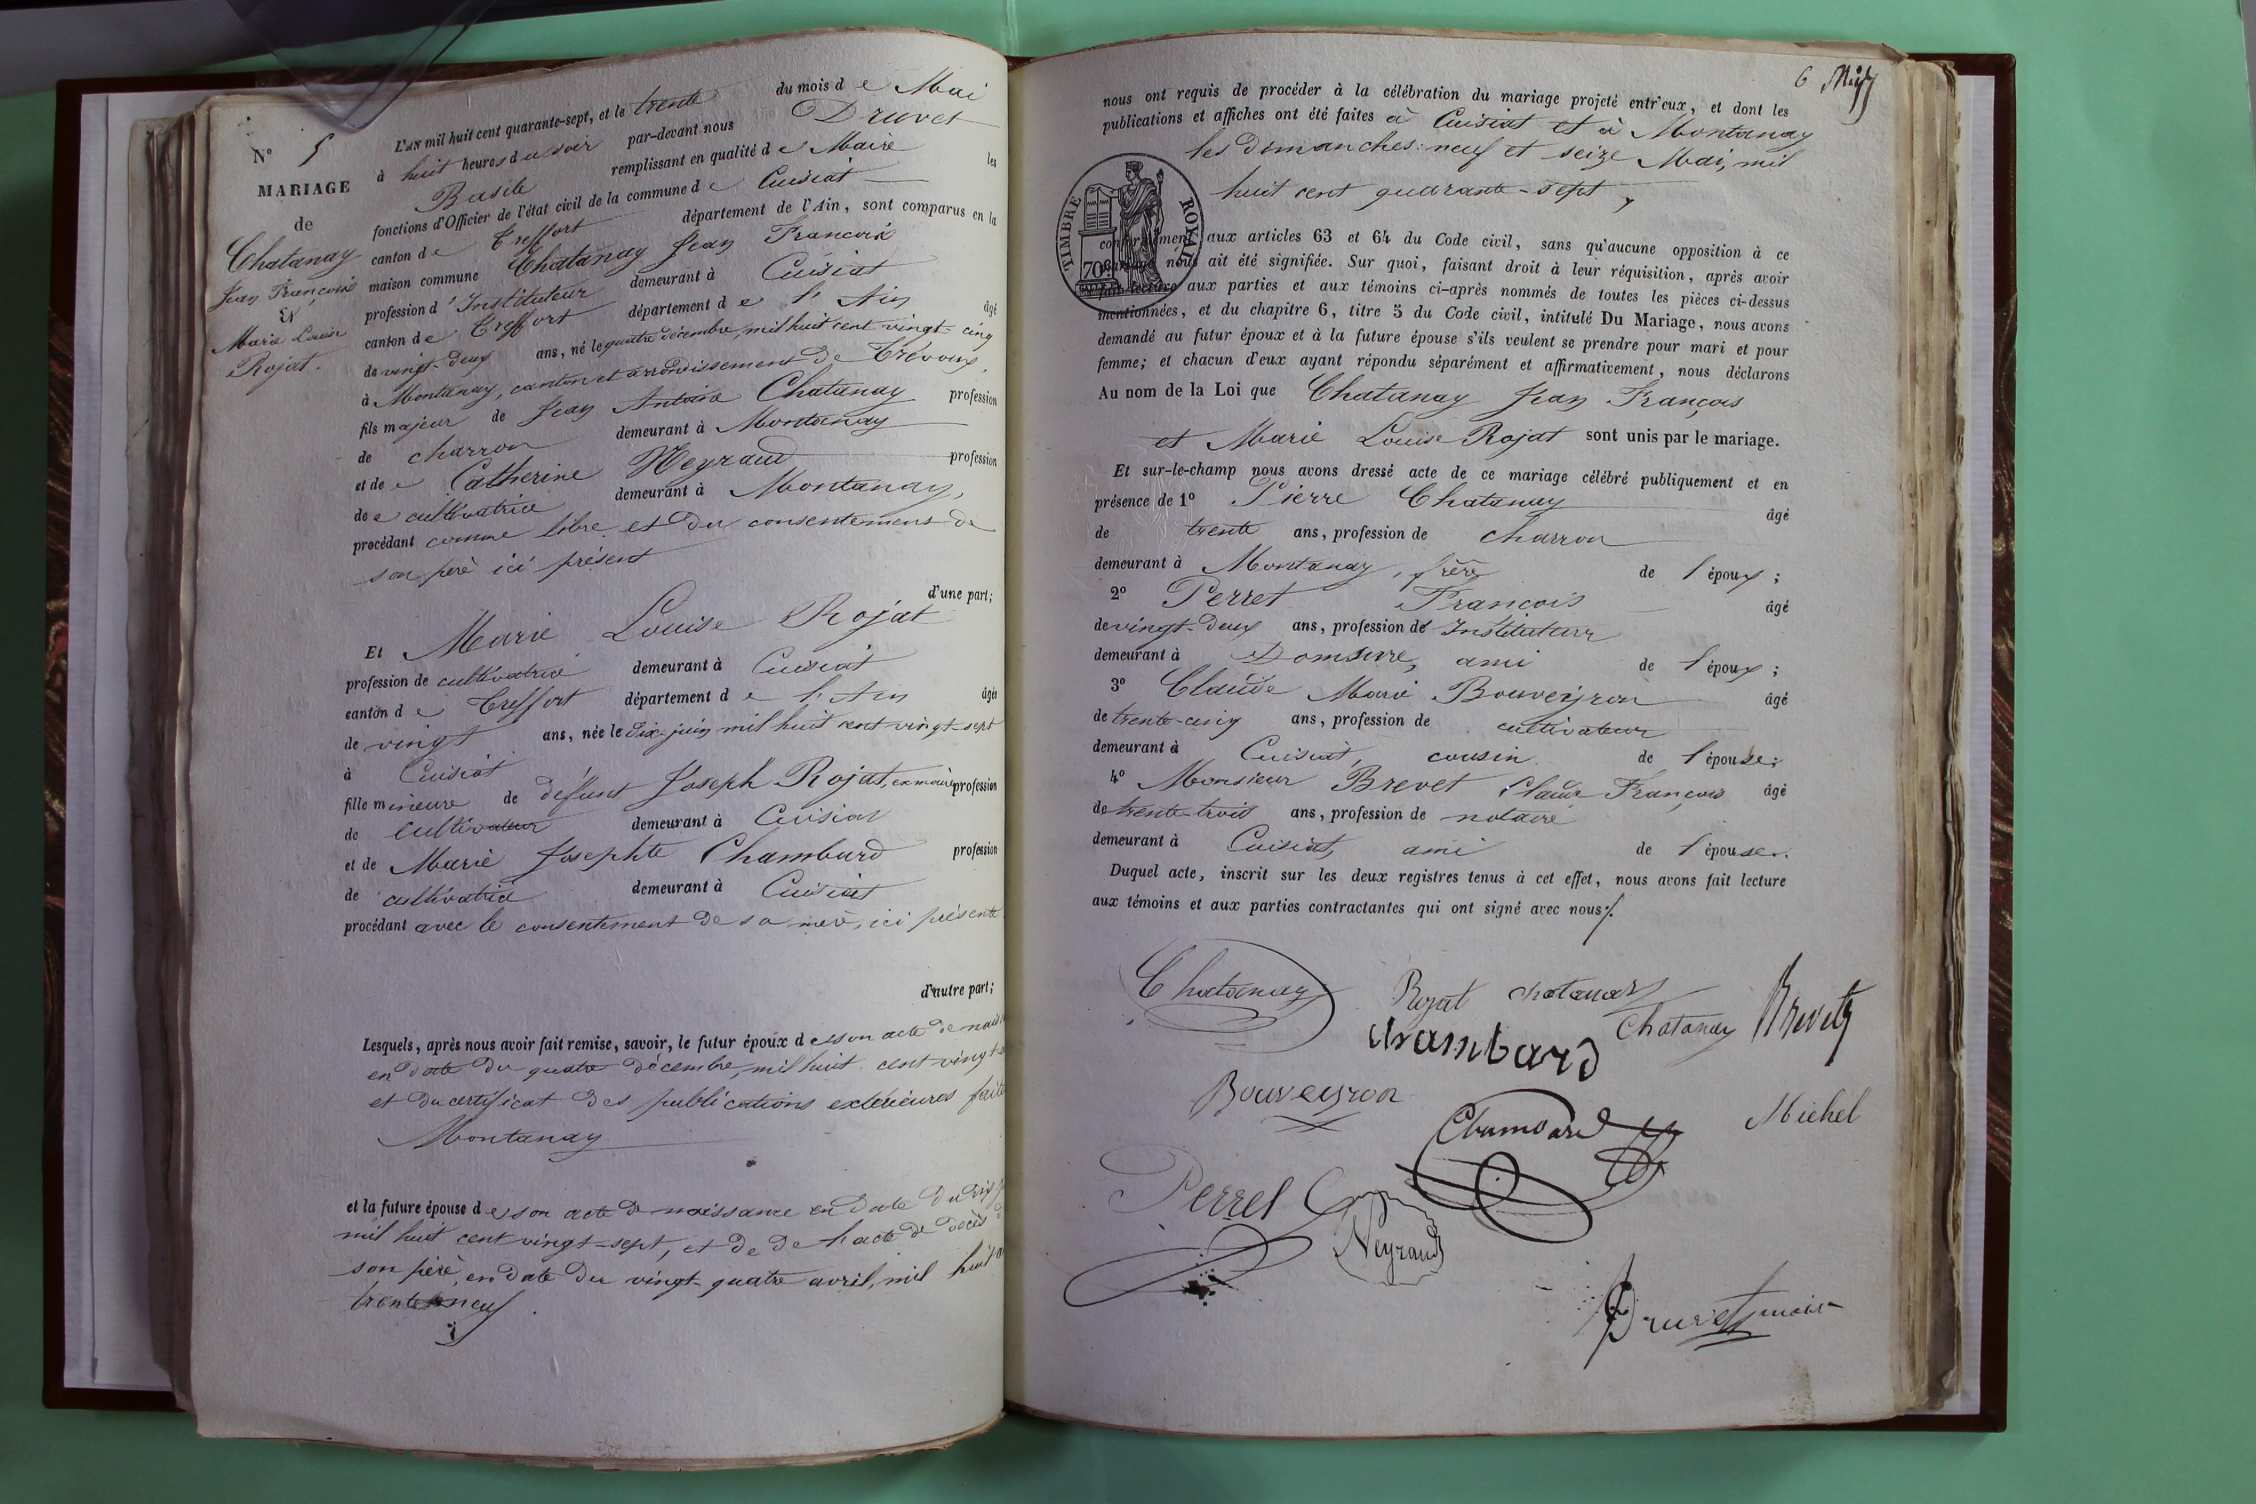 N° 5
MARIAGE
de
Chatanay
Jean François
Et
Marie Louise
Rojat.
L'AN mil huit cent quarante-sept, et le trente du mois de Mai
à huit heures du soir par-devant nous Druvet
Basile remplissant en qualité de Maire les
fonctions d'Officier de l'état civil de la commune de Cuisiat
canton de Treffort département de l'Ain, sont comparus en la
maison commune Chatanay Jean François
profession d'Instituteur demeurant à Cuisiat
canton de Treffort département de l'Ain âgé
de vingt-deux ans, né le quatre décembre, mil huit cent vingt-cinq
à Montanay, canton et arrondissement de Trévoux,
fils majeur de Jean Antoine Chatanay profession
de charron demeurant à Montanay
et de Catherine Neyraud profession
de cultivatrice demeurant à Montanay,
procédant comme libre et du consentement de
son père ici présent
d'une part;
Et Marie Louise Rojat
profession de cultivatrice demeurant à Cuisiat
canton de Treffort département de l'Ain âgée
de vingt ans, née le dix juin mil huit cent vingt-sept
à Cuisiat
fille mineure de défunt Joseph Rojat, ex maire profession
de cultivateur demeurant à Cuisiat
et de Marie Josephte Chambard profession
de cultivatrice demeurant à Cuisiat
procédant avec le consentement de sa mère, ici présente
d'autre part;
Lesquels, après nous avoir fait remise, savoir, le futur époux de son acte de
en date du quatre décembre, mil huit cent vingt
et du certificat des publications extérieures
Montanay
et la future épouse de son acte de naissance en date du dix
mil huit cent vingt-sept, et de de l'acte de décès
son père, en date du vingt-quatre avril, mil huit
trente neuf.
6
nous ont requis de procéder à la célébration du mariage projeté entr'eux, et dont les
publications et affiches ont été faites à Cuisiat et à Montanay
les dimanches: neuf et seize Mai, mil
huit cent quarante-sept,
TIMBRE ROYAL
70c
conformément aux articles 63 et 64 du Code civil, sans qu'aucune opposition à ce
mariage nous ait été signifiée. Sur quoi, faisant droit à leur réquisition, après avoir
fait lecture aux parties et aux témoins ci-après nommés de toutes les pièces ci-dessus
mentionnées, et du chapitre 6, titre 5 du Code civil, intitulé Du Mariage, nous avons
demandé au futur époux et à la future épouse s'ils veulent se prendre pour mari et pour
femme; et chacun d'eux ayant répondu séparément et affirmativement, nous déclarons
Au nom de la Loi que Chatanay Jean François
et Marie Louise Rojat sont unis par le mariage.
Et sur-le-champ nous avons dressé acte de ce mariage célébré publiquement et en
présence de 1° Pierre Chatanay âgé
de trente ans, profession de charron
demeurant à Montanay, frère de l'époux;
2° Perret François âgé
de vingt-deux ans, profession d'Instituteur
demeurant à Domsure, ami de l'époux;
3° Claude Marie Bouveyron âgé
de trente-cinq ans, profession de cultivateur
demeurant à Cuisiat, cousin de l'épouse;
4° Monsieur Brevet Claude François âgé
de trente-trois ans, profession de notaire
demeurant à Cuisiat, ami de l'épouse.
Duquel acte, inscrit sur les deux registres tenus à cet effet, nous avons fait lecture
aux témoins et aux parties contractantes qui ont signé avec nous.
Chatanay
Rojat chatanay
Brevet
chambard
Chatanay
Bouveyron
Chambard
Michel
Perret
Neyraud
Druvet maire